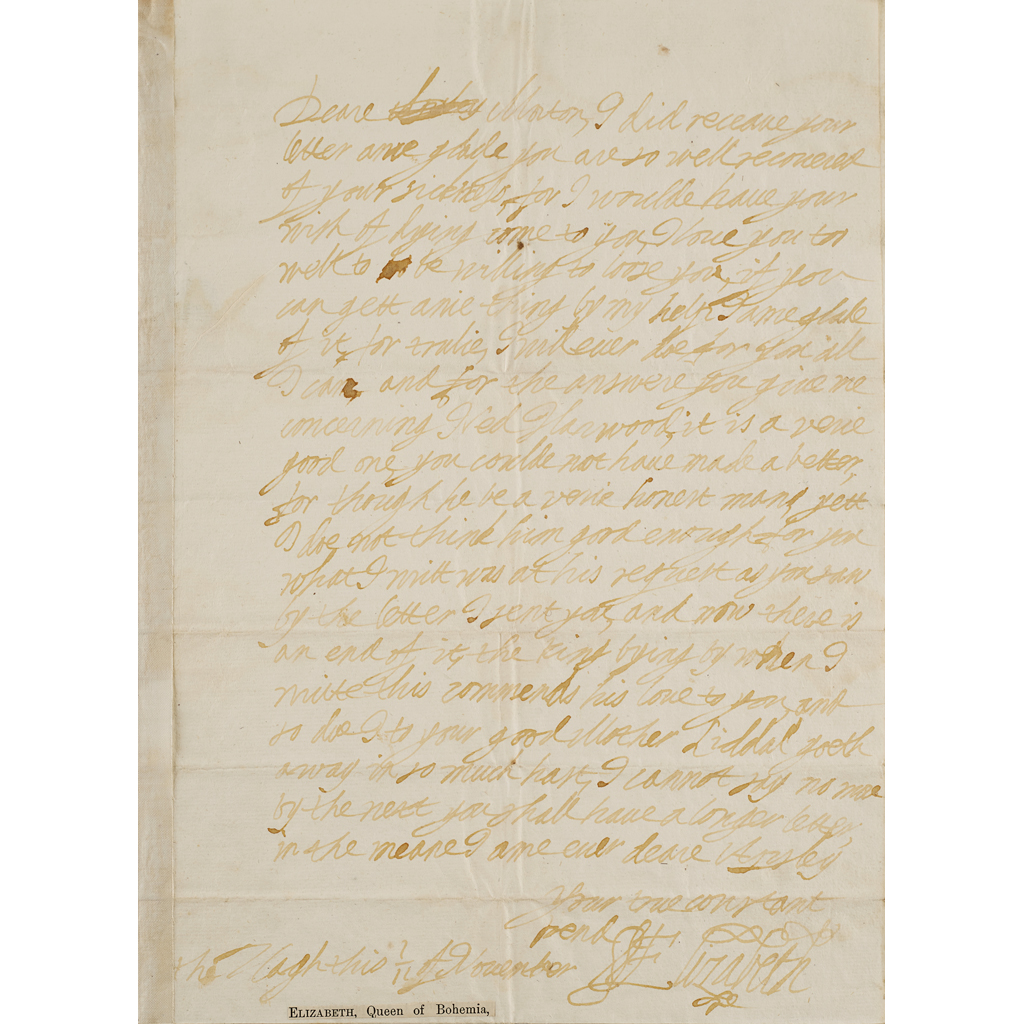 Deare Morton, I did receaue your
letter ame glade you are so well recouered
of your sicknes, for I woulde haue your
wish of dying come to you, I loue you too
well to be willing to loose you, if you
can gett anie thing by my help I ame glade
of it, for trulie, I will euer doe for you all
I can, and for the answere you giue me
concerning Ned Harwood, it is a verie
good one, you coulde not haue made a better,
for though he be a verie honest man, yett
I doe not think him good enough for you
what I writt was at his request as you saw
by the letter I sent you, and now there is
an end of it, the King bying by when I
write this commends his loue to you, and
so doe I to your good Mother Liddal goeth
away in so much hast, I cannot say no more
by the next you shall haue a longer letter,
in the meane I ame euer deare
Your true constant
frend Elizabeth
the Hagh this 1/11 of November
ELIZABETH, Queen of Bohemia,